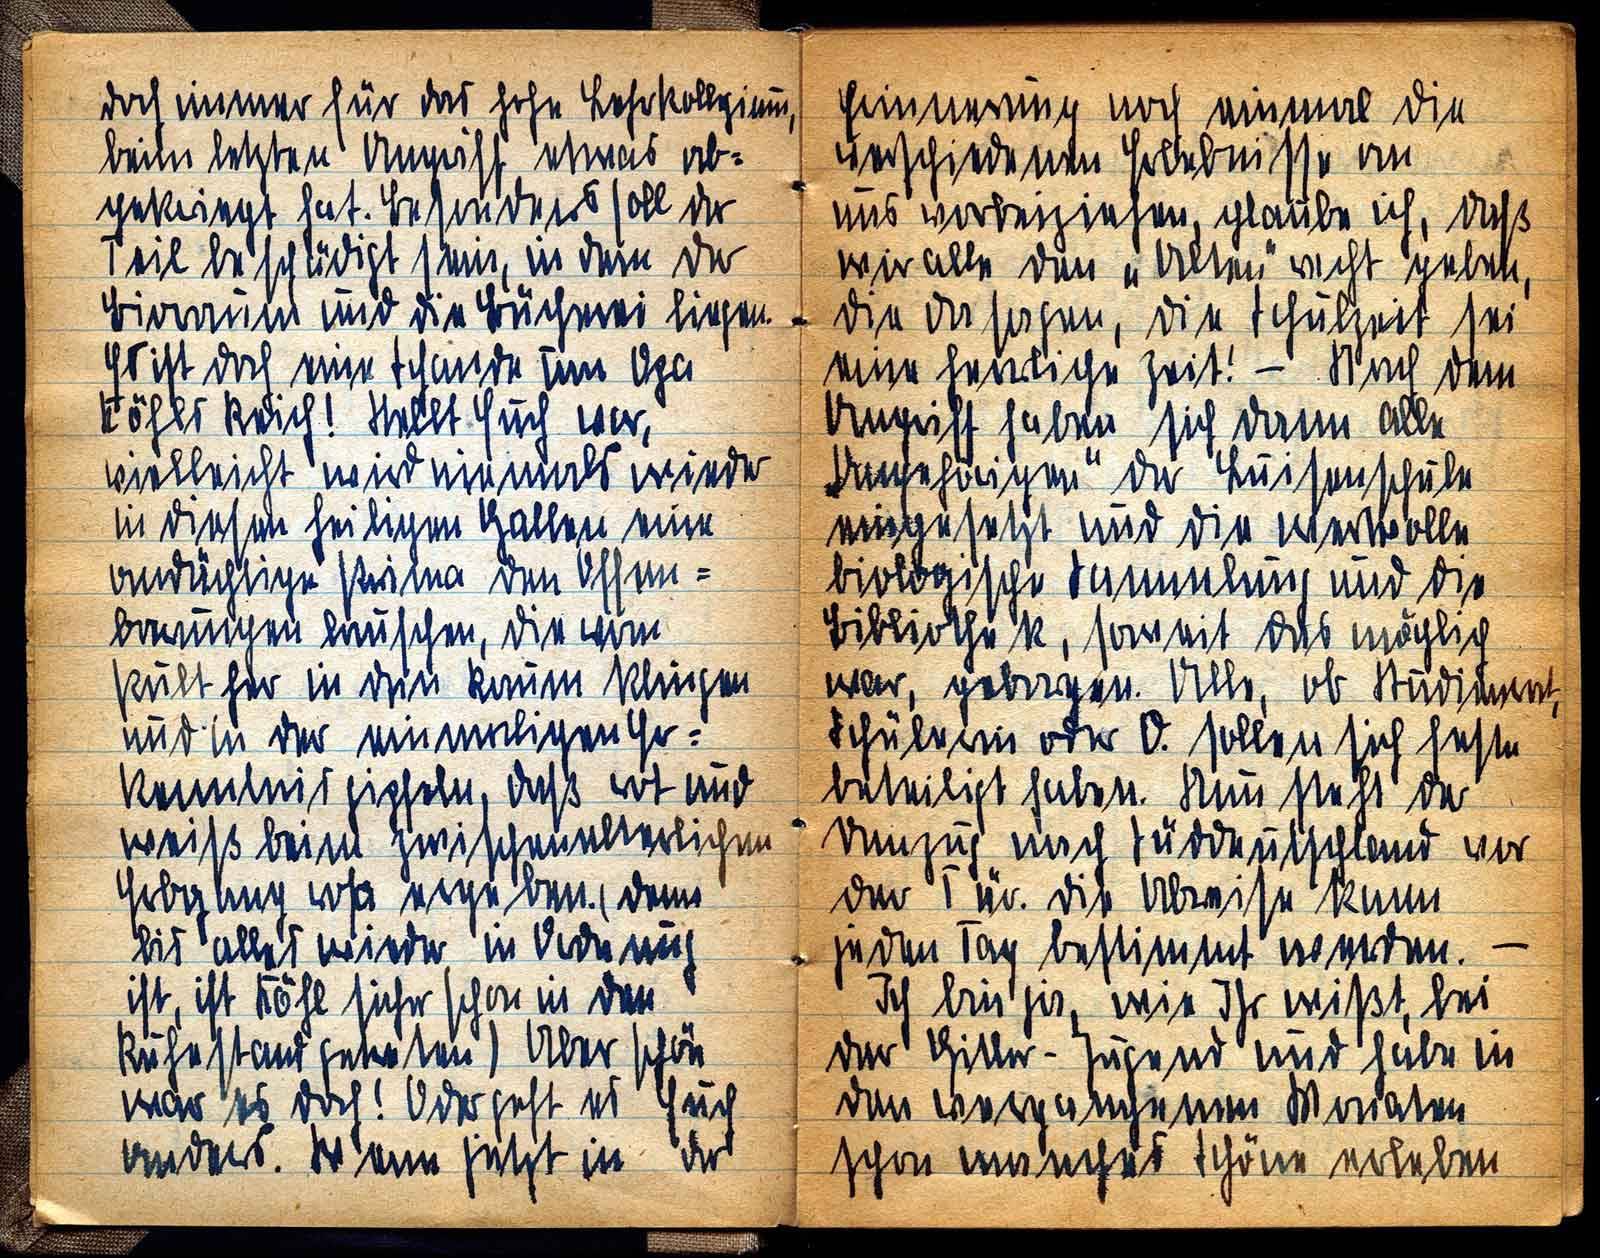 doch immer für das hohe Lehrkollegium,
beim letzten Angriff etwas ab=
gekriegt hat. Besonders soll der
Teil beschädigt sein, in dem der
Bioraum und die Bücherei liegen.
Es ist doch eine Schande um Opa
Köhls Reich! Stellt Euch vor,
vielleicht wird niemals wieder
in diesen heiligen Hallen eine
andächtige Prima den Offen=
barungen lauschen, die vom
Pult her in den Raum klingen
und in der einmaligen Er=
kenntnis gipfeln, daß rot und
weiß beim zwischenelterlichen
Erbgang rosa ergeben. (denn
bis alles wieder in Ordnung
ist, ist Köhl sicher schon in den
Ruhestand getreten) Aber schön
war es doch! Oder geht es Euch
anders. Wenn jetzt in der
Erinnerung noch einmal die
verschiedenen Erlebnisse an
uns vorbeiziehen, glaube ich, daß
wir alle den „Alten" recht geben,
die da sagen, die Schulzeit sei
eine herrliche Zeit! — Nach dem
Angriff haben sich dann alle
„Angehörigen" der Luisenschule
eingesetzt und die wertvolle
biologische Sammlung und die
Bibliothek, soweit das möglich
war, geborgen. Alle, ob Studienrat,
Schülerin oder O. sollen sich feste
beteiligt haben. Nun steht der
Umzug nach Süddeutschland vor
der Tür. Die Abreise kann
jeden Tag bestimmt werden. —
Ich bin ja, wie Ihr wißt, bei
der Hitler-Jugend und habe in
den vergangenen Monaten
schon manches Schöne erleben